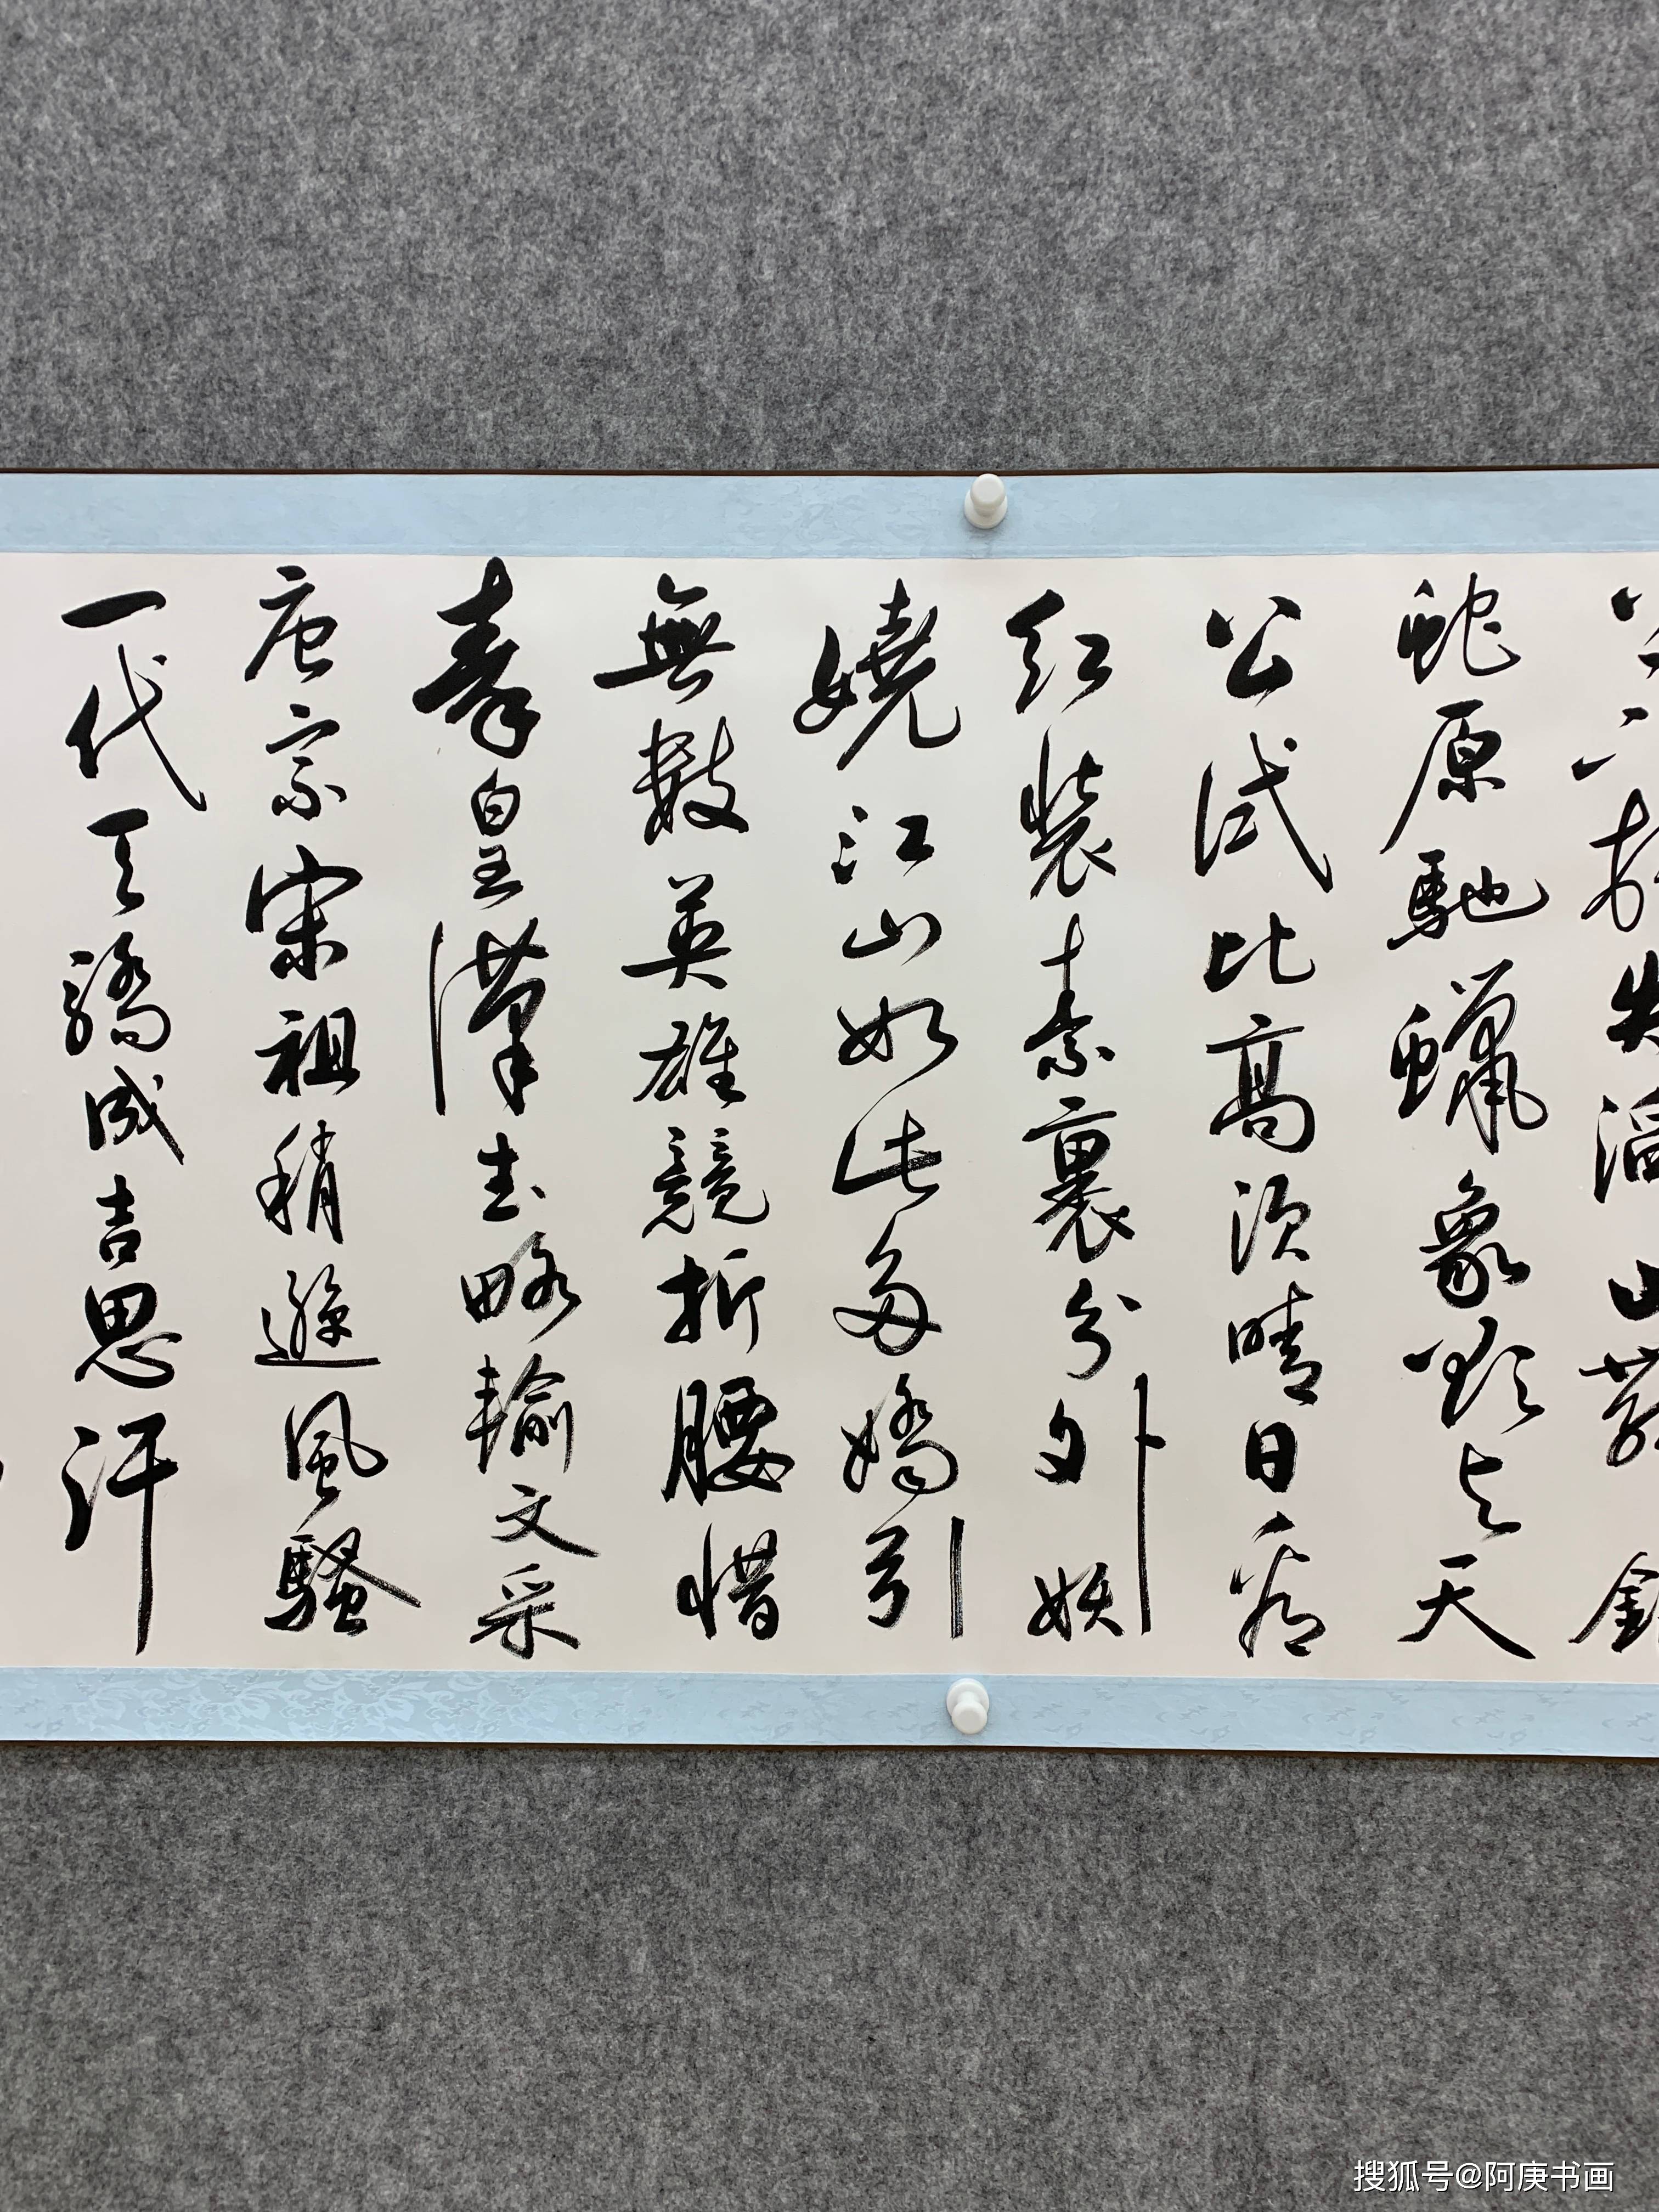 失滔山舞銀
蛇原馳蠟象欲与天
公試比高須晴日看
紅裝素裹分外妖
嬈江山如此多嬌引
無數英雄競折腰惜
秦皇漢武略輸文采
唐宗宋祖稍遜風騷
一代天驕成吉思汗
搜狐号@阿庚书画